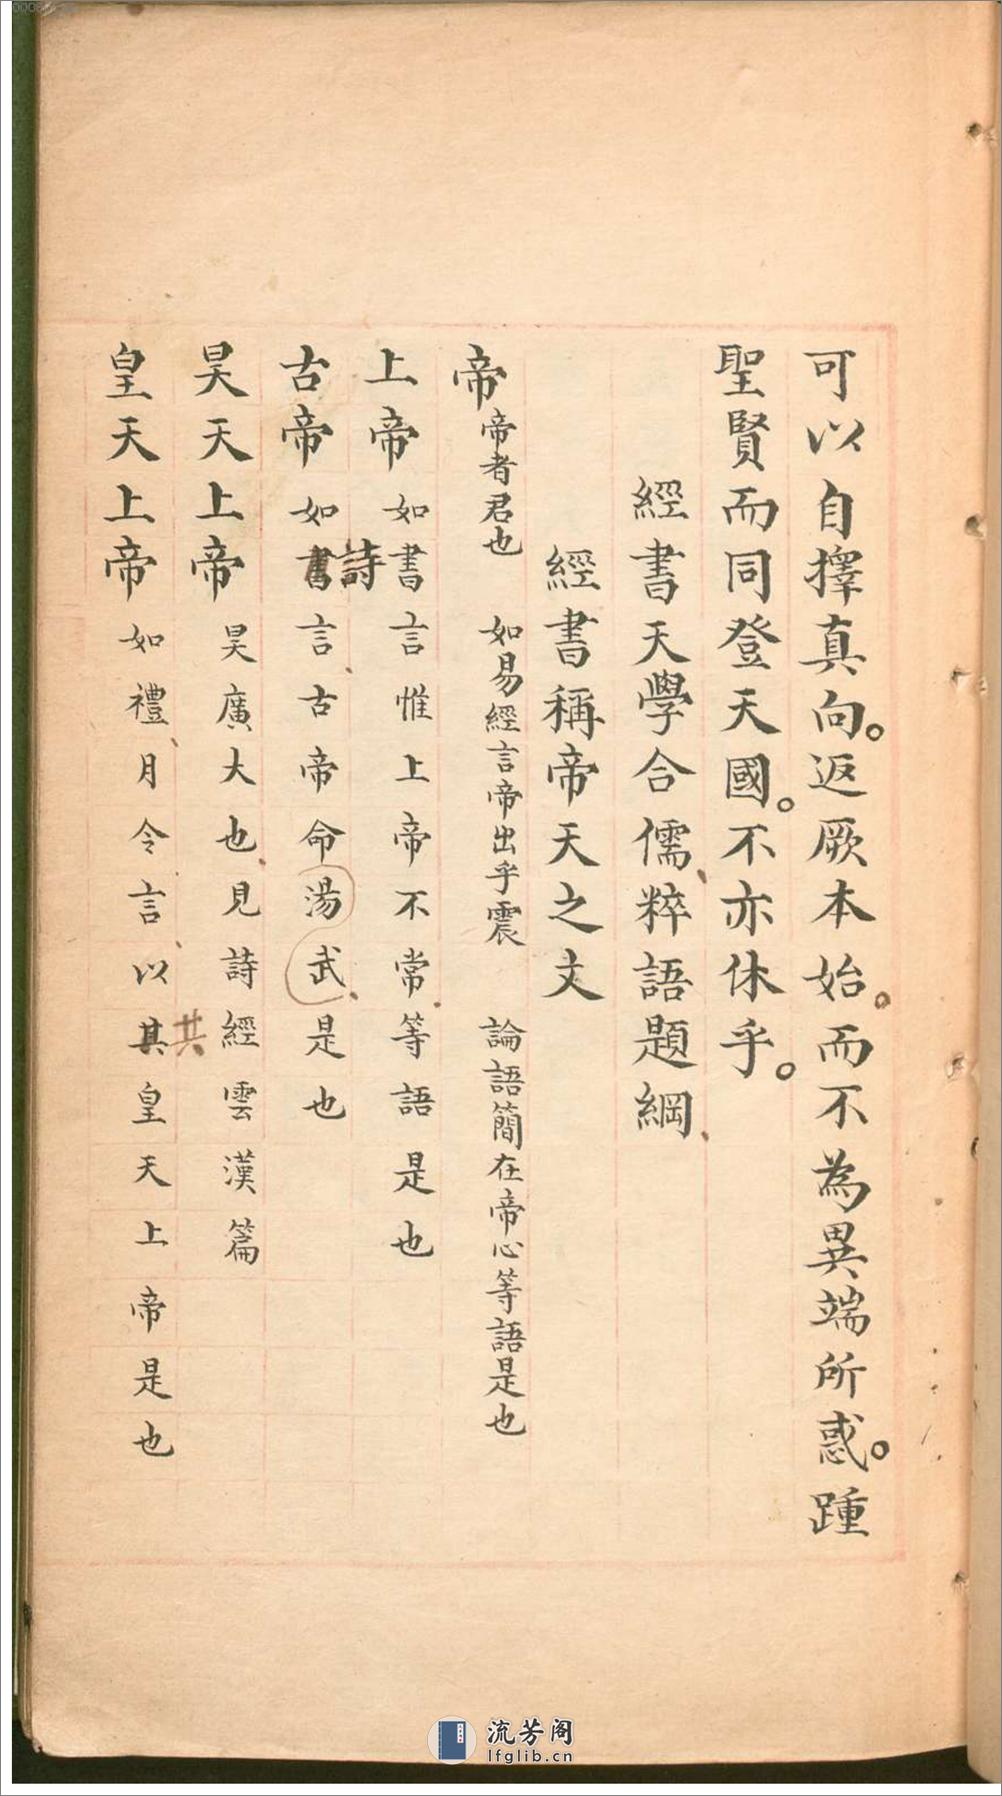 可以自擇真向。返厥本始。而不為異端所惑。踵
聖賢而同登天國。不亦休乎。
經書天學合儒、粹語題綱、
經書稱帝天之文
帝 帝者君也 如易經言帝出乎震 論語簡在帝心等語是也
上帝 如書言惟上帝不常、等語是也
古帝 如書詩言、古帝命湯武、是也
昊天上帝 昊廣大也、見詩經雲漢篇
皇天上帝 如禮、月令言、以其共皇天上帝是也
流芳阁
lfglib.cn